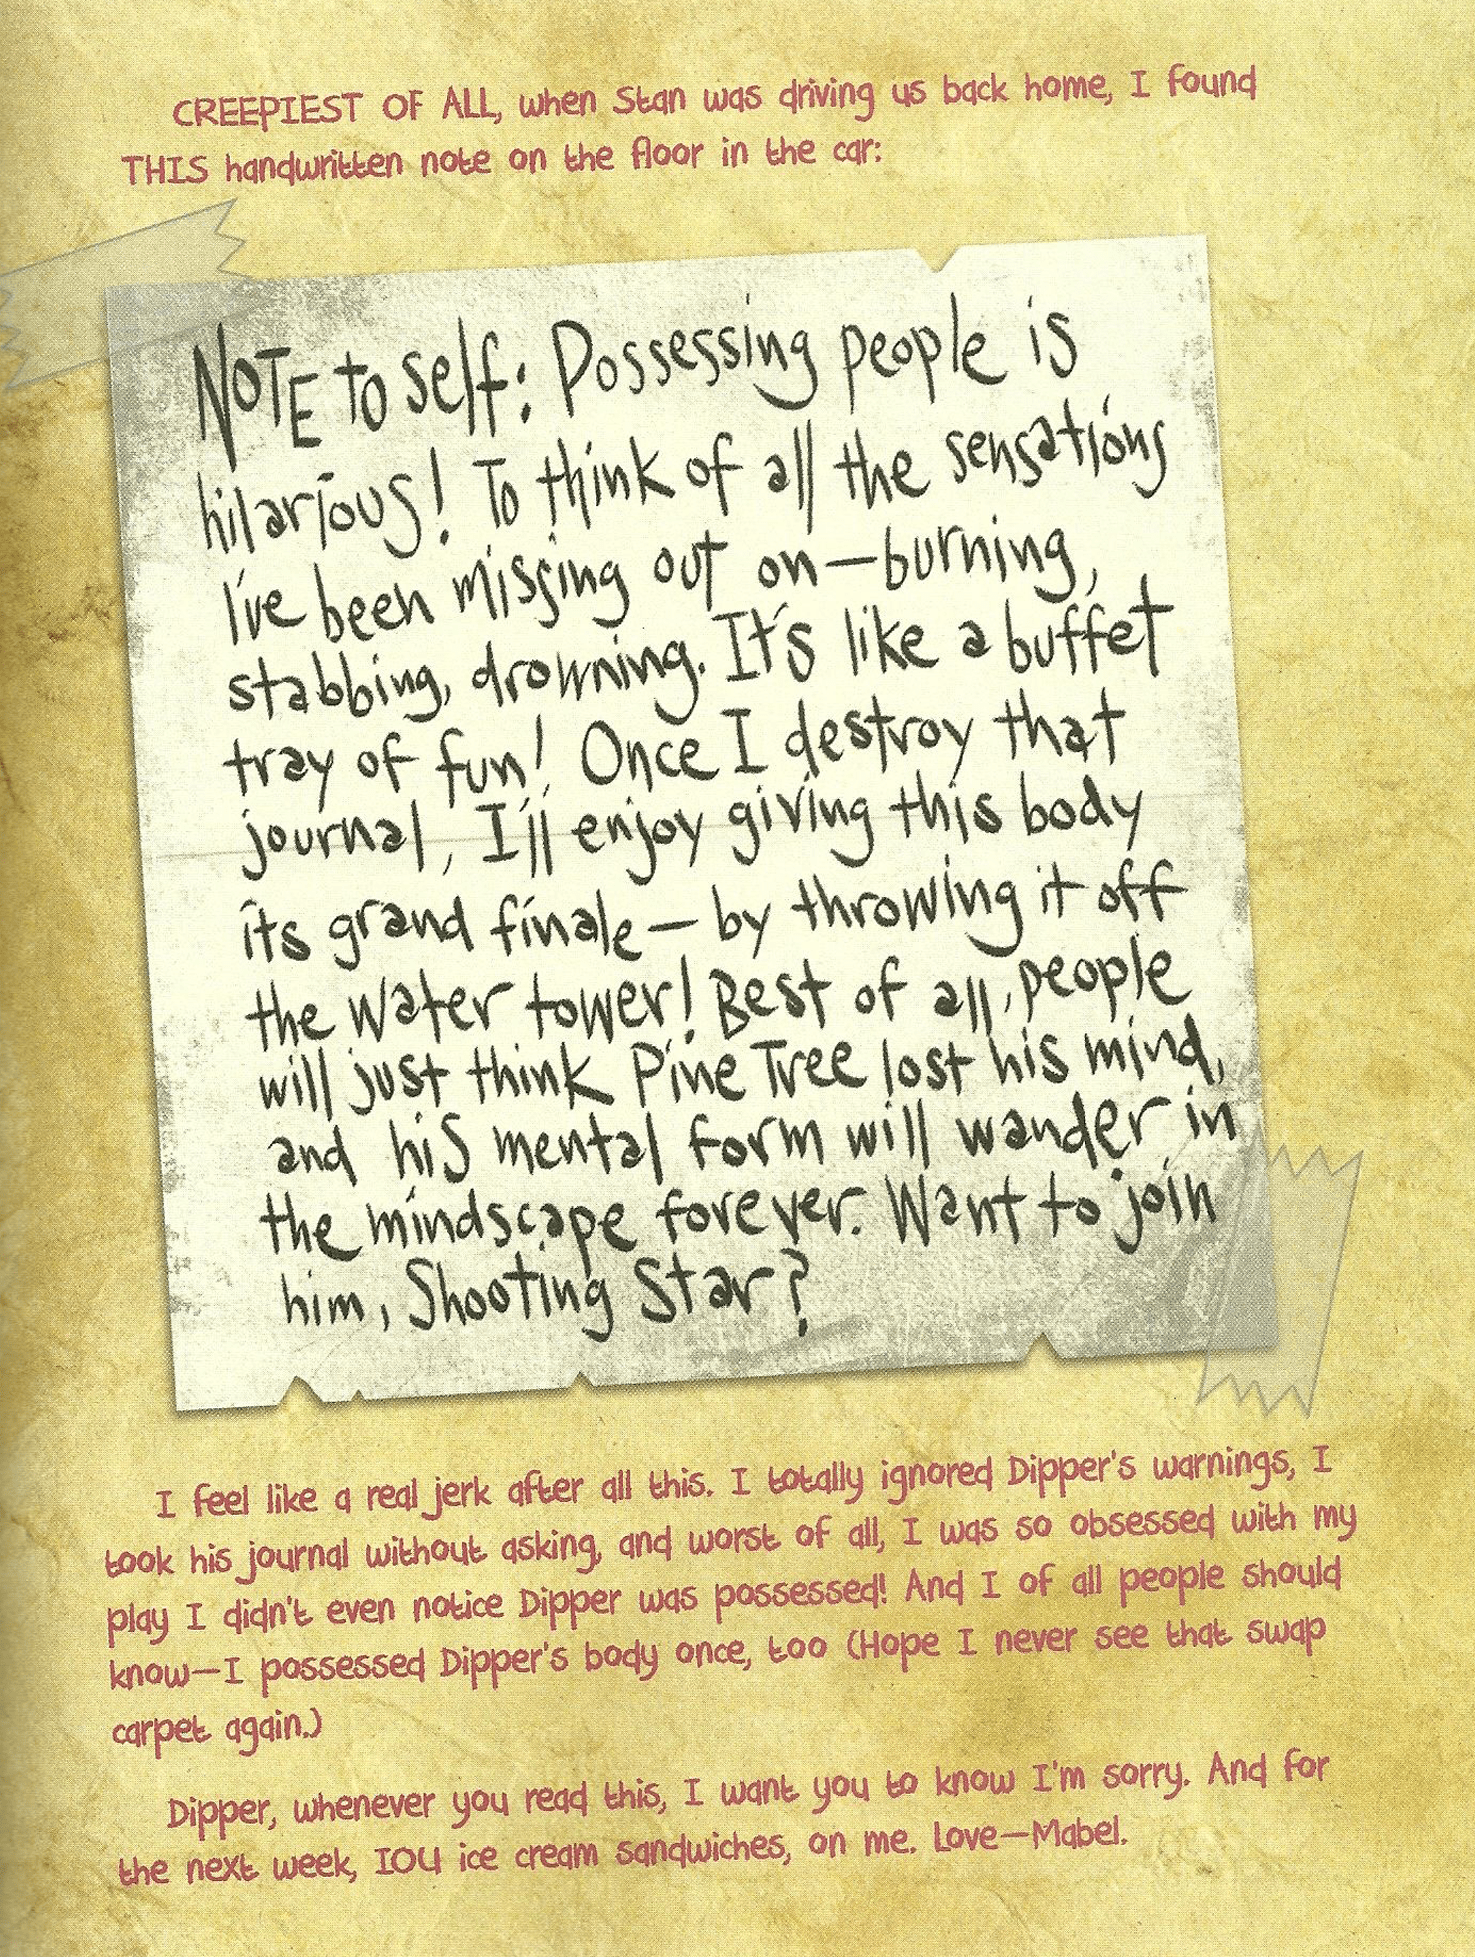 CREEPIEST OF ALL, when Stan was driving us back home, I found
THIS handwritten note on the floor in the car:
NOTE to self: Possessing people is
hilarious! To think of all the sensations
I've been missing out on—burning,
stabbing, drowning. It's like a buffet
tray of fun! Once I destroy that
journal, I'll enjoy giving this body
its grand finale—by throwing it off
the water tower! Best of all, people
will just think Pine Tree lost his mind,
and his mental form will wander in
the mindscape forever. Want to join
him, Shooting Star?
I feel like a real jerk after all this. I totally ignored Dipper's warnings, I
took his journal without asking, and worst of all, I was so obsessed with my
play I didn't even notice Dipper was possessed! And I of all people should
know—I possessed Dipper's body once, too (Hope I never see that swap
carpet again.)
Dipper, whenever you read this, I want you to know I'm sorry. And for
the next week, IOU ice cream sandwiches, on me. Love—Mabel.